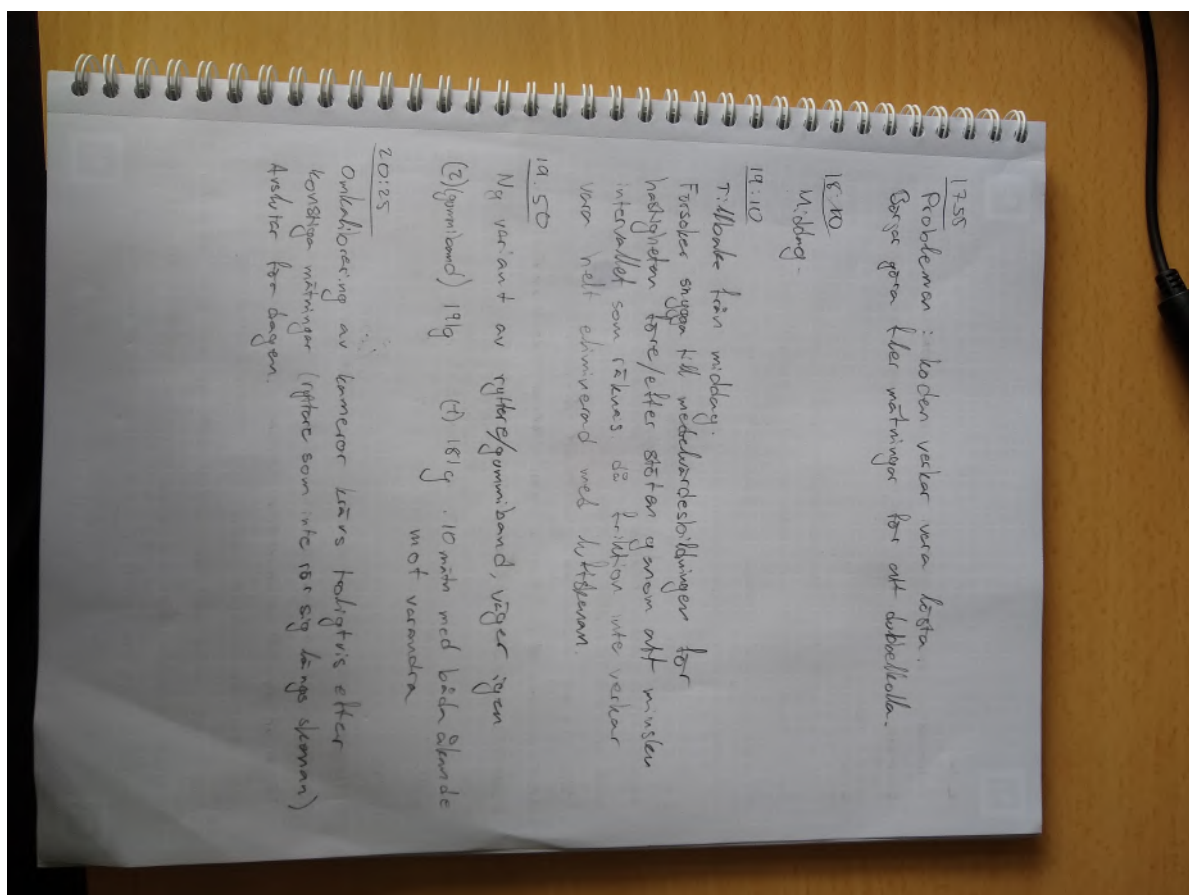 1755
Problemen i koden verkar vara lösta.
Börjar göra fler mätningar för att dubbelkolla.
18:10
Middag.
19:10
Tillbaka från middag.
Försöker snygga till medelvärdesbildningen för
hastigheten före/efter stöten genom att minska
intervallet som räknas då friktion inte verkar
vara helt eliminerad med luftskenan.
19.50
Ny variant av ryttare/gummiband, väger igen
(2)(gummiband) 191g (1) 181g. 10 mätn med båda åkande
mot varandra
20:25
Omkalibrering av kameror krävs troligtvis efter
konstiga mätningar (ryttare som inte rör sig längs skenan)
Avslutar för dagen.